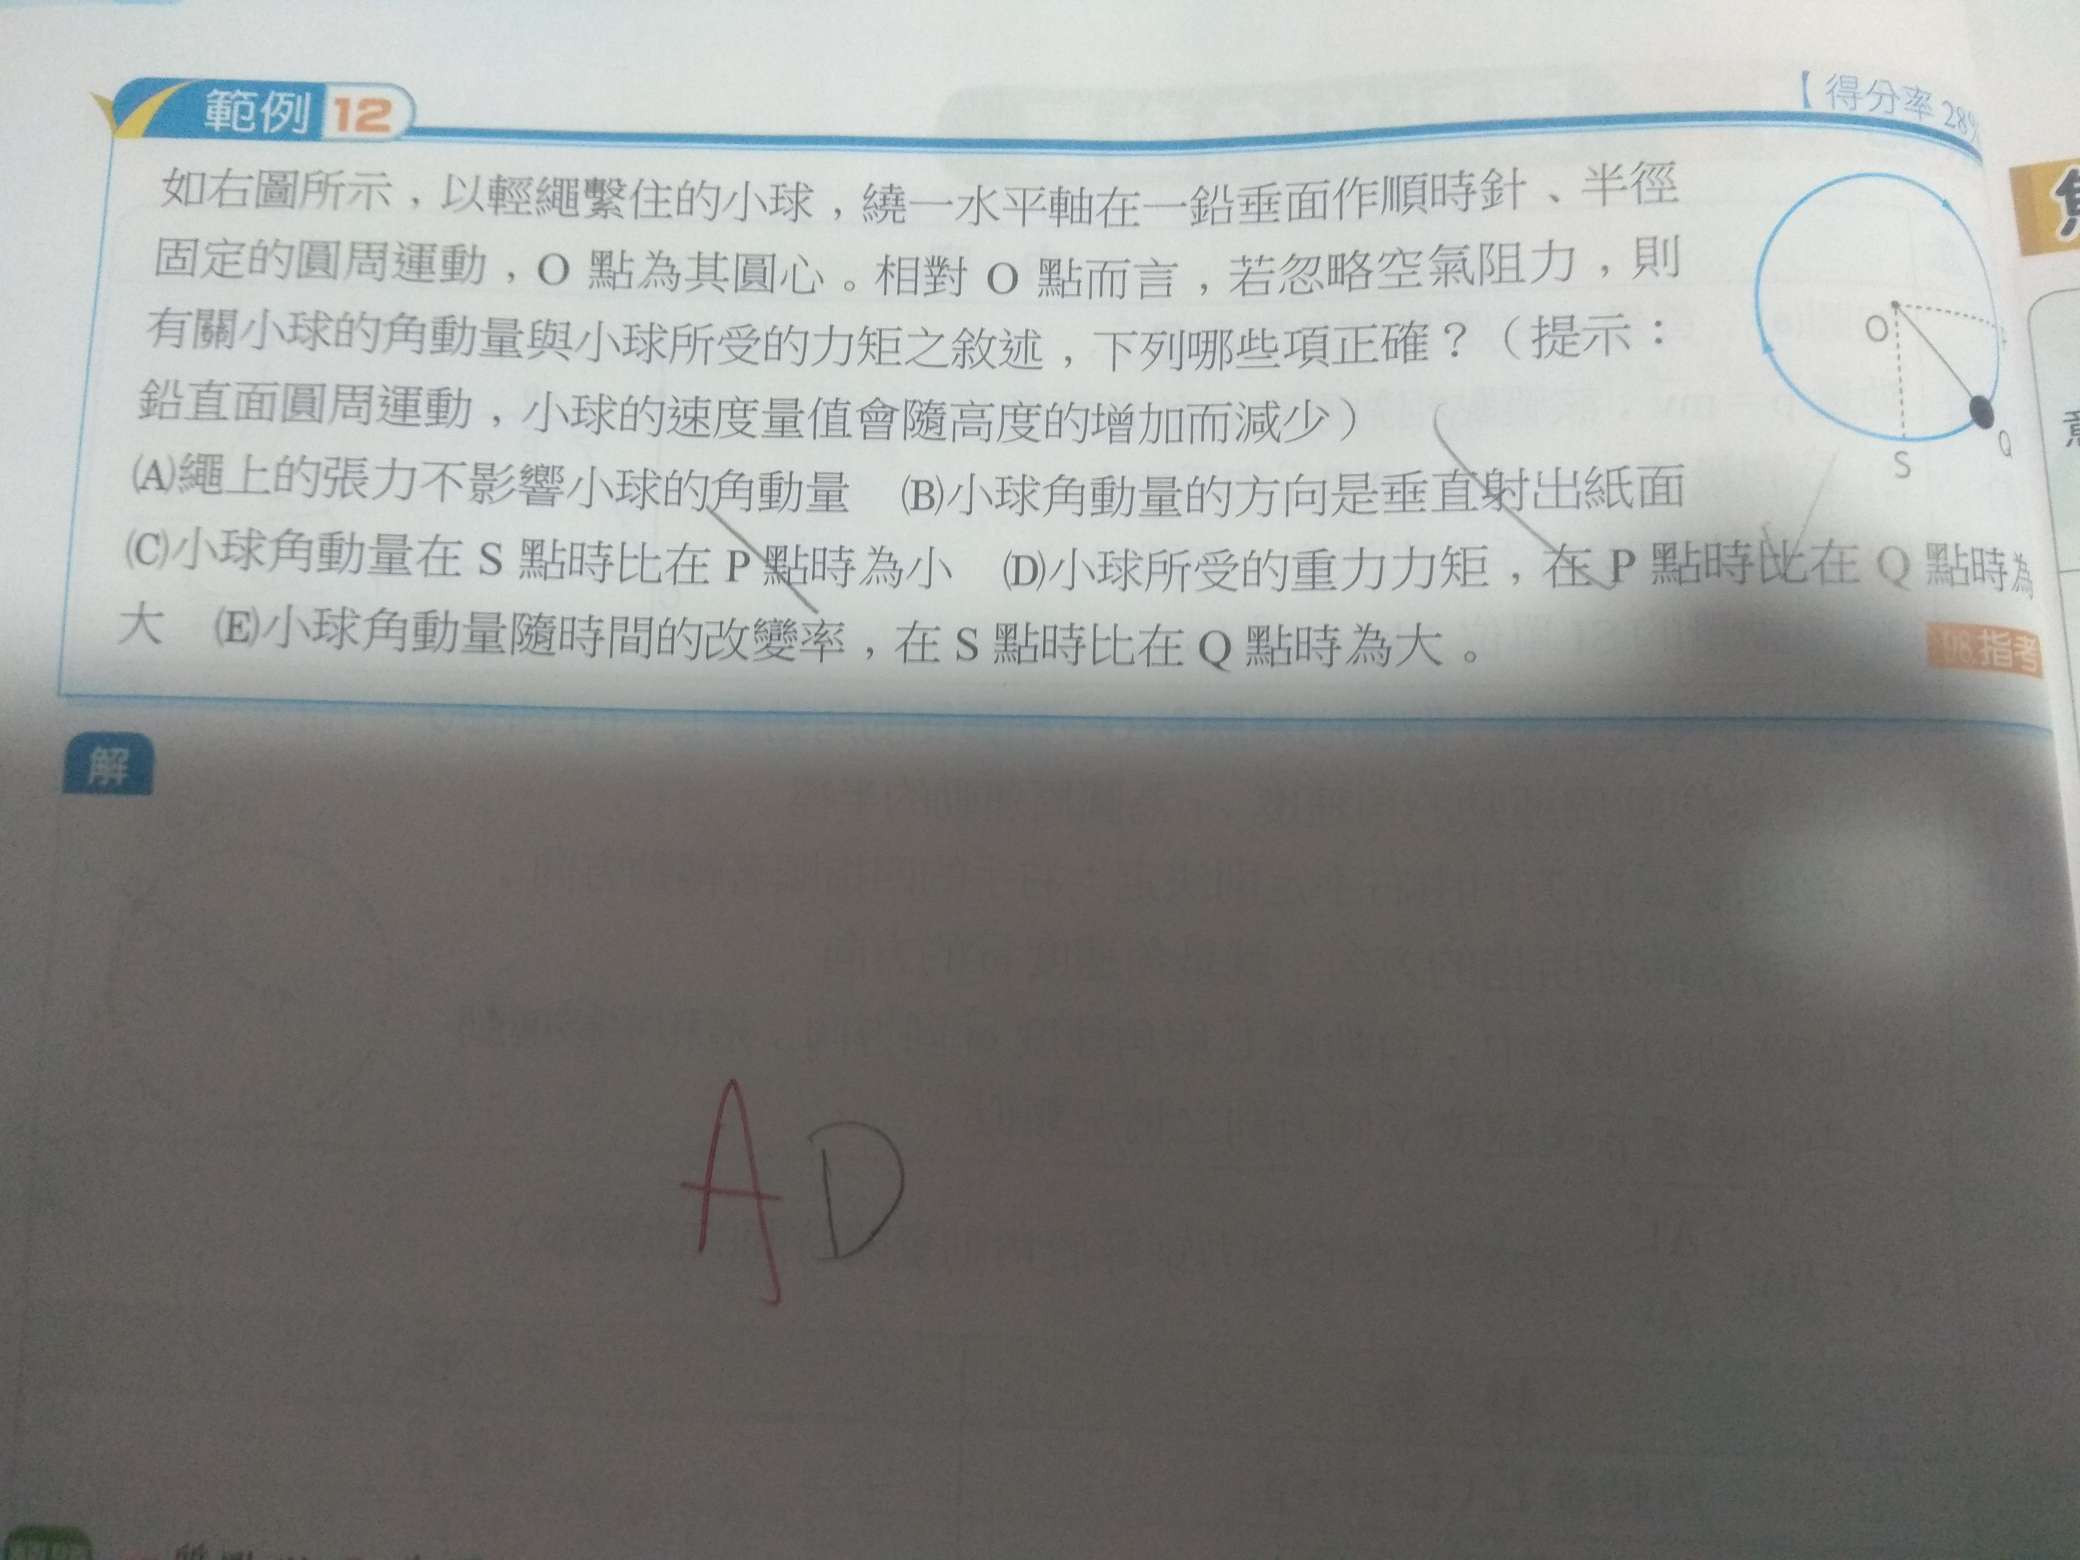 範例 12
【得分率 28%
如右圖所示，以輕繩繫住的小球，繞一水平軸在一鉛垂面作順時針、半徑
固定的圓周運動，O 點為其圓心。相對 O 點而言，若忽略空氣阻力，則
有關小球的角動量與小球所受的力矩之敘述，下列哪些項正確？（提示：
鉛直面圓周運動，小球的速度量值會隨高度的增加而減少）
(A)繩上的張力不影響小球的角動量　(B)小球角動量的方向是垂直射出紙面
(C)小球角動量在 S 點時比在 P 點時為小　(D)小球所受的重力力矩，在 P 點時比在 Q 點時為
大　(E)小球角動量隨時間的改變率，在 S 點時比在 Q 點時為大。
O
Q
S
指考
解
AD